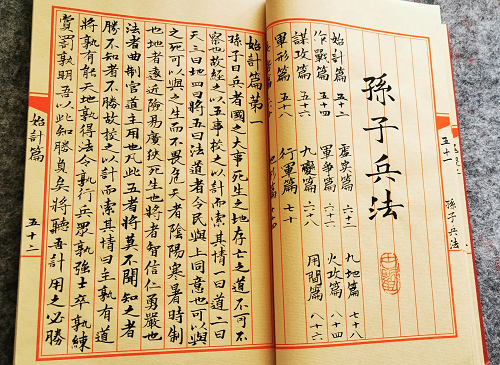 孫子兵法
五十一
孫子兵法
始計篇 五十二
作戰篇 五十四
謀攻篇 五十六
軍形篇 五十八
虛實篇 六十三
軍爭篇 六十六
九變篇 六十八
行軍篇 七十
九地篇 七十八
火攻篇 八十四
用間篇 八十六
始計篇第一
孫子曰兵者國之大事死生之地存亡之道不可不
察也故經之以五事校之以計而索其情一曰道二曰
天三曰地四曰將五曰法道者令民與上同意也可以與
之死可以與之生而不畏危天者陰陽寒暑時制
也地者遠近險易廣狹死生也將者智信仁勇嚴也
法者曲制官道主用也凡此五者將莫不聞知之者
勝不知者不勝故校之以計而索其情曰主孰有道
將孰有能天地孰得法令孰行兵眾孰強士卒孰練
賞罰孰明吾以此知勝負矣將聽吾計用之必勝
始計篇
五十二